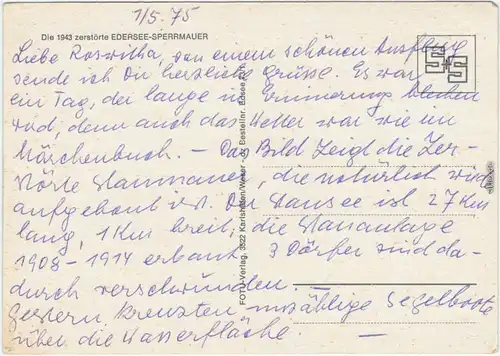 1/5.75
Die 1943 zerstörte EDERSEE-SPERRMAUER
Liebe Roswitha, von einem schönen Ausflug
sende ich Dir herzliche Grüsse. Es war
ein Tag, der lange in Erinnerung bleiben
wird, denn auch das Wetter war wie im
Märchenbuch. - Das Bild zeigt die Zer-
störte Staumauer, die natürlich wieder
aufgebaut ist. Der Stausee ist 27 Km
lang, 1 Km breit, die Stauanlage
1908-1914 erbaut. 3 Dörfer sind da-
durch verschwunden. -
Gestern kreuzten unzählige Segelboote
über die Wasserfläche. -
FOTO-Verlag, 3522 Karlshafen/Weser